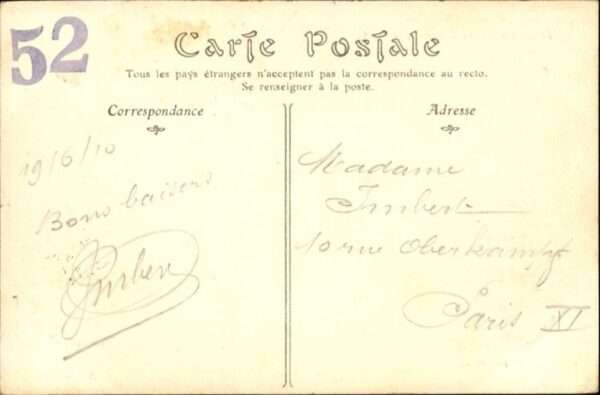 52
Carte Postale
Tous les pays étrangers n'acceptent pas la correspondance au recto.
Se renseigner à la poste.
Correspondance
19/6/10
Bons baisers
Imbert
Adresse
Madame
Imbert
10 rue Oberkampf
Paris XI